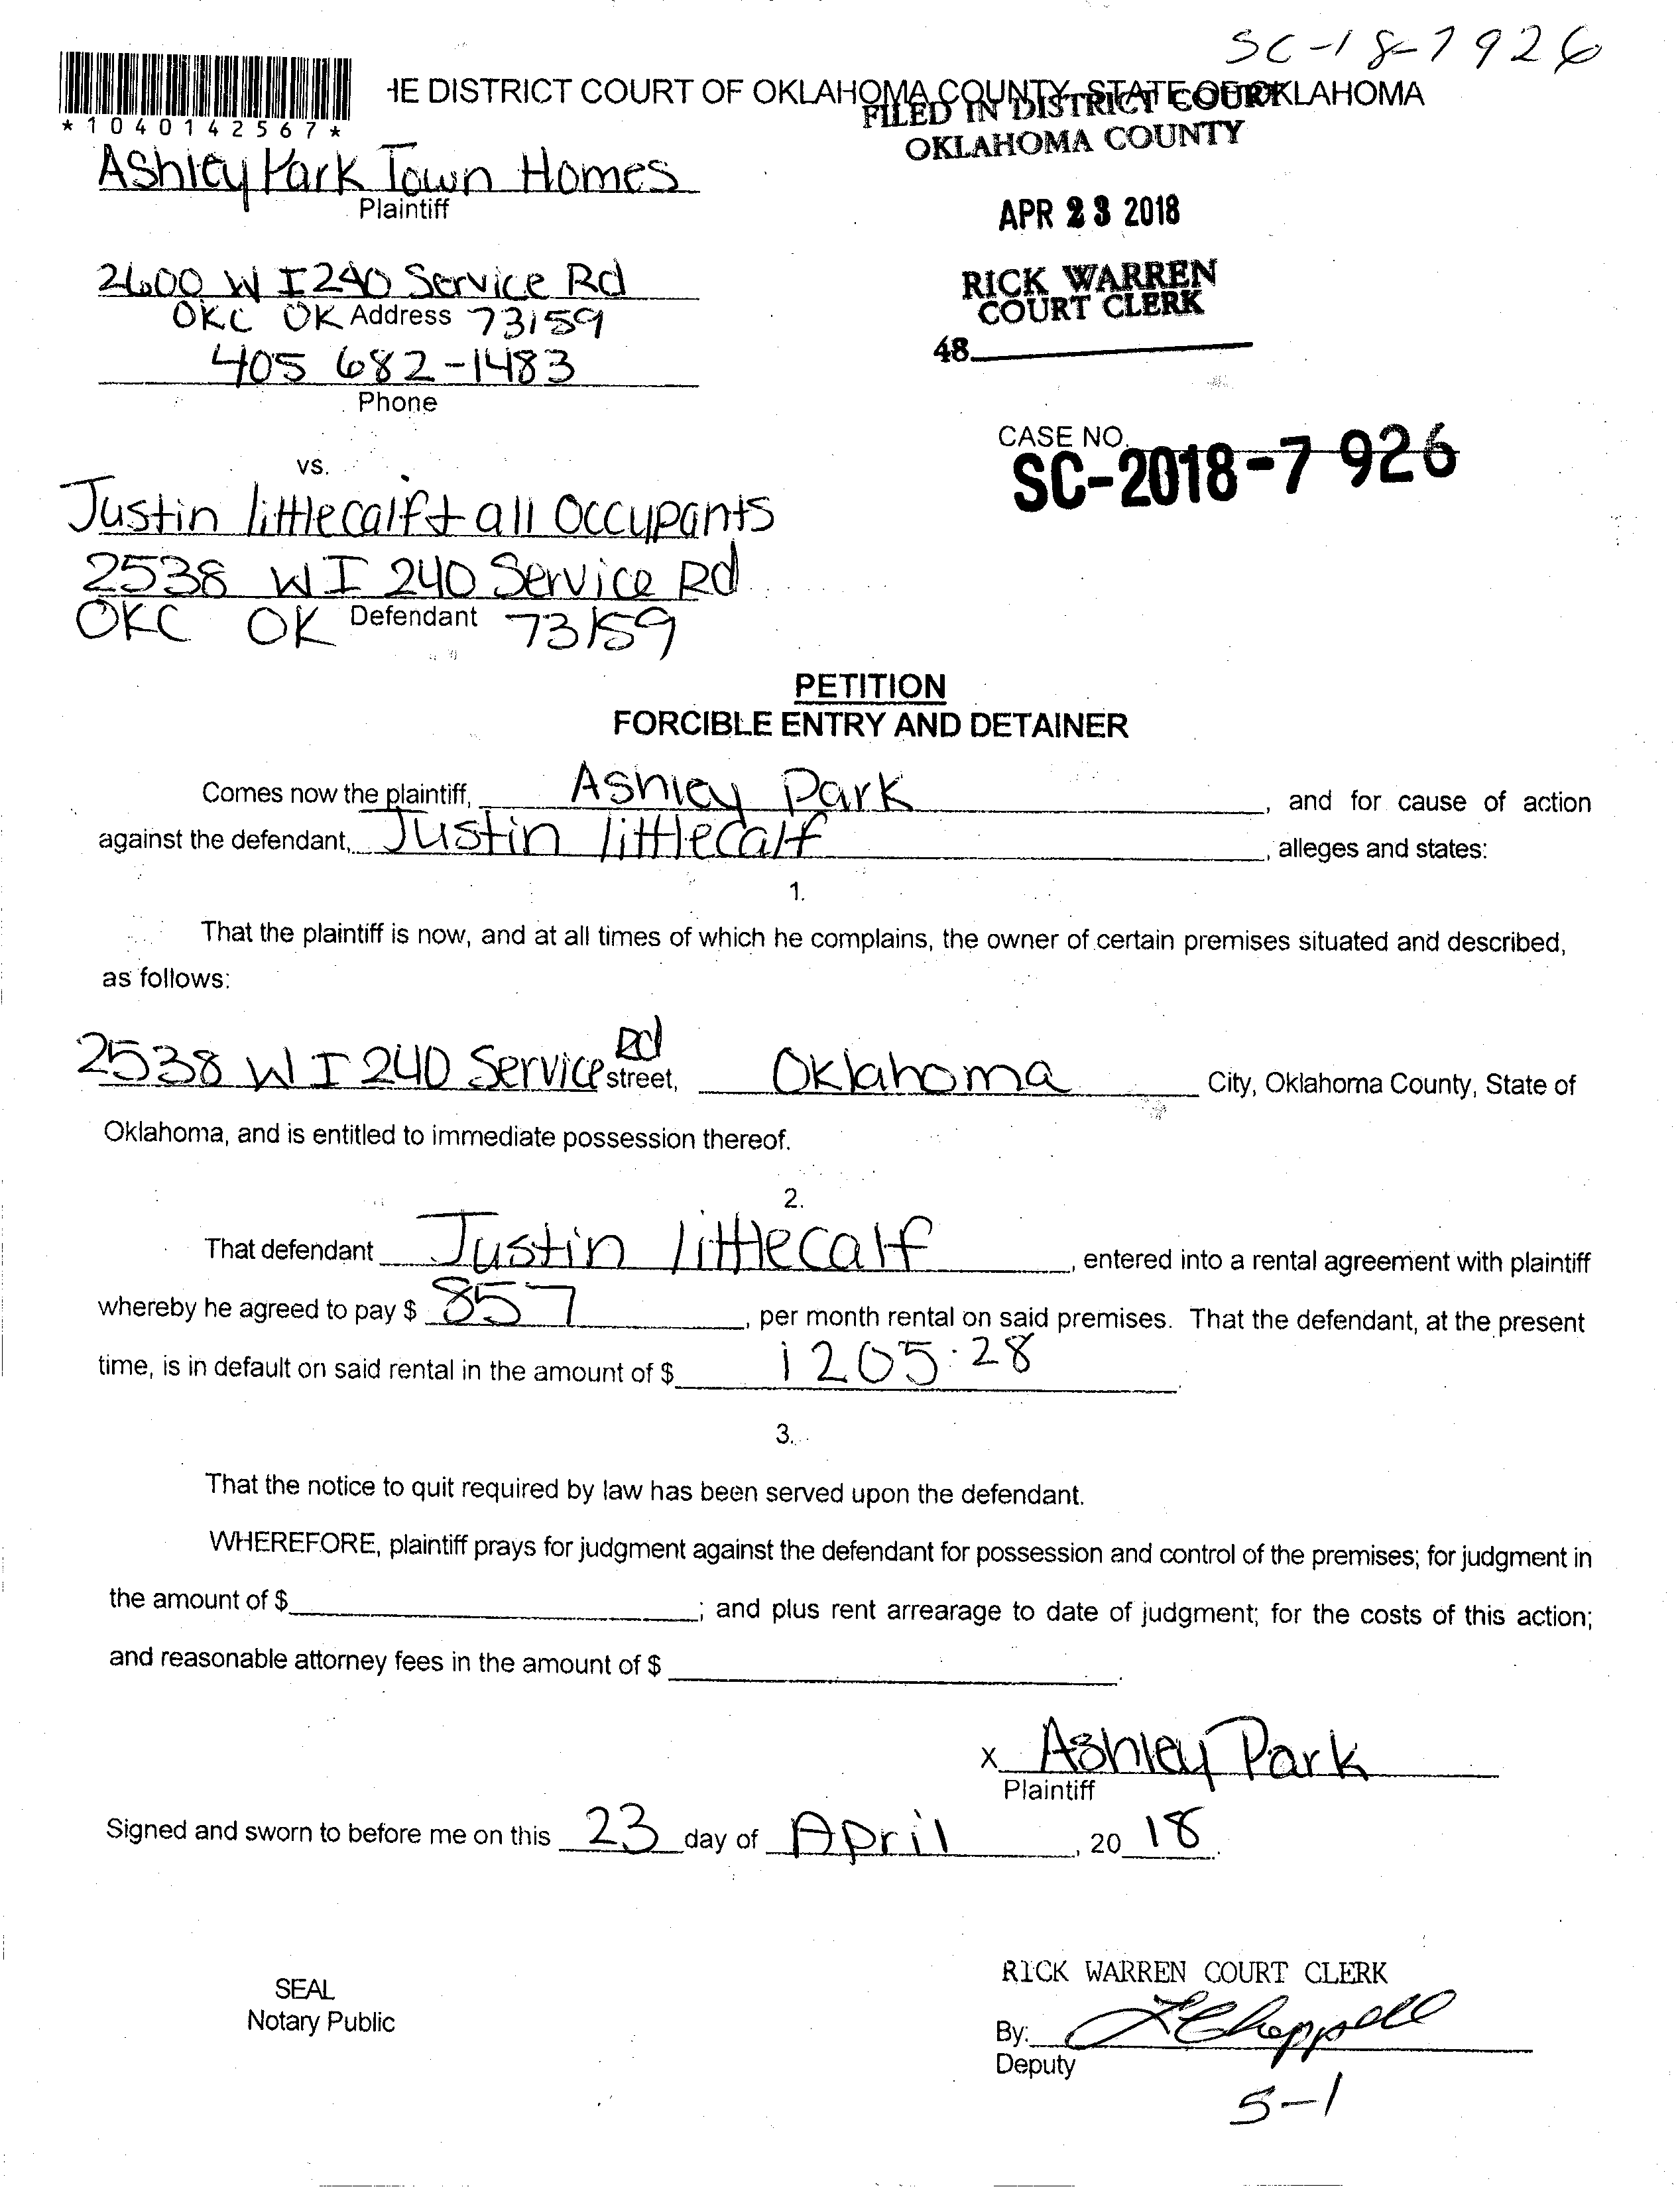 SC-18-7926
*1040142567*
HE DISTRICT COURT OF OKLAHOMA COUNTY, STATE OF OKLAHOMA
FILED IN DISTRICT COURT
OKLAHOMA COUNTY
Ashley Park Town Homes
Plaintiff
APR 23 2018
2600 W I 240 Service Rd
OKC OK Address 73159
RICK WARREN
COURT CLERK
405 682-1483
48
Phone
CASE NO.
SC-2018-7926
vs.
Justin littlecalf + all Occupants
2538 W I 240 Service Rd
OKC OK Defendant 73159
PETITION
FORCIBLE ENTRY AND DETAINER
Comes now the plaintiff, Ashley Park, and for cause of action
against the defendant, Justin littlecalf, alleges and states:
1.
That the plaintiff is now, and at all times of which he complains, the owner of certain premises situated and described,
as follows:
2538 W I 240 Service Rd street, Oklahoma City, Oklahoma County, State of
Oklahoma, and is entitled to immediate possession thereof.
2.
That defendant Justin littlecalf, entered into a rental agreement with plaintiff
whereby he agreed to pay $ 857, per month rental on said premises. That the defendant, at the present
time, is in default on said rental in the amount of $ 1205.28.
3.
That the notice to quit required by law has been served upon the defendant.
WHEREFORE, plaintiff prays for judgment against the defendant for possession and control of the premises; for judgment in
the amount of $ ; and plus rent arrearage to date of judgment; for the costs of this action;
and reasonable attorney fees in the amount of $ .
x Ashley Park
Plaintiff
Signed and sworn to before me on this 23 day of April, 20 18.
RICK WARREN COURT CLERK
SEAL
Notary Public
By: Chappell
Deputy
5-1